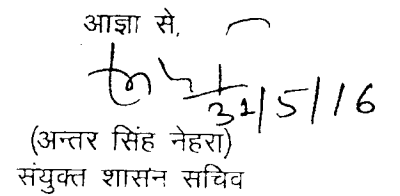 आज्ञा से,
31/5/16
(अन्तर सिंह नेहरा)
संयुक्त शासन सचिव